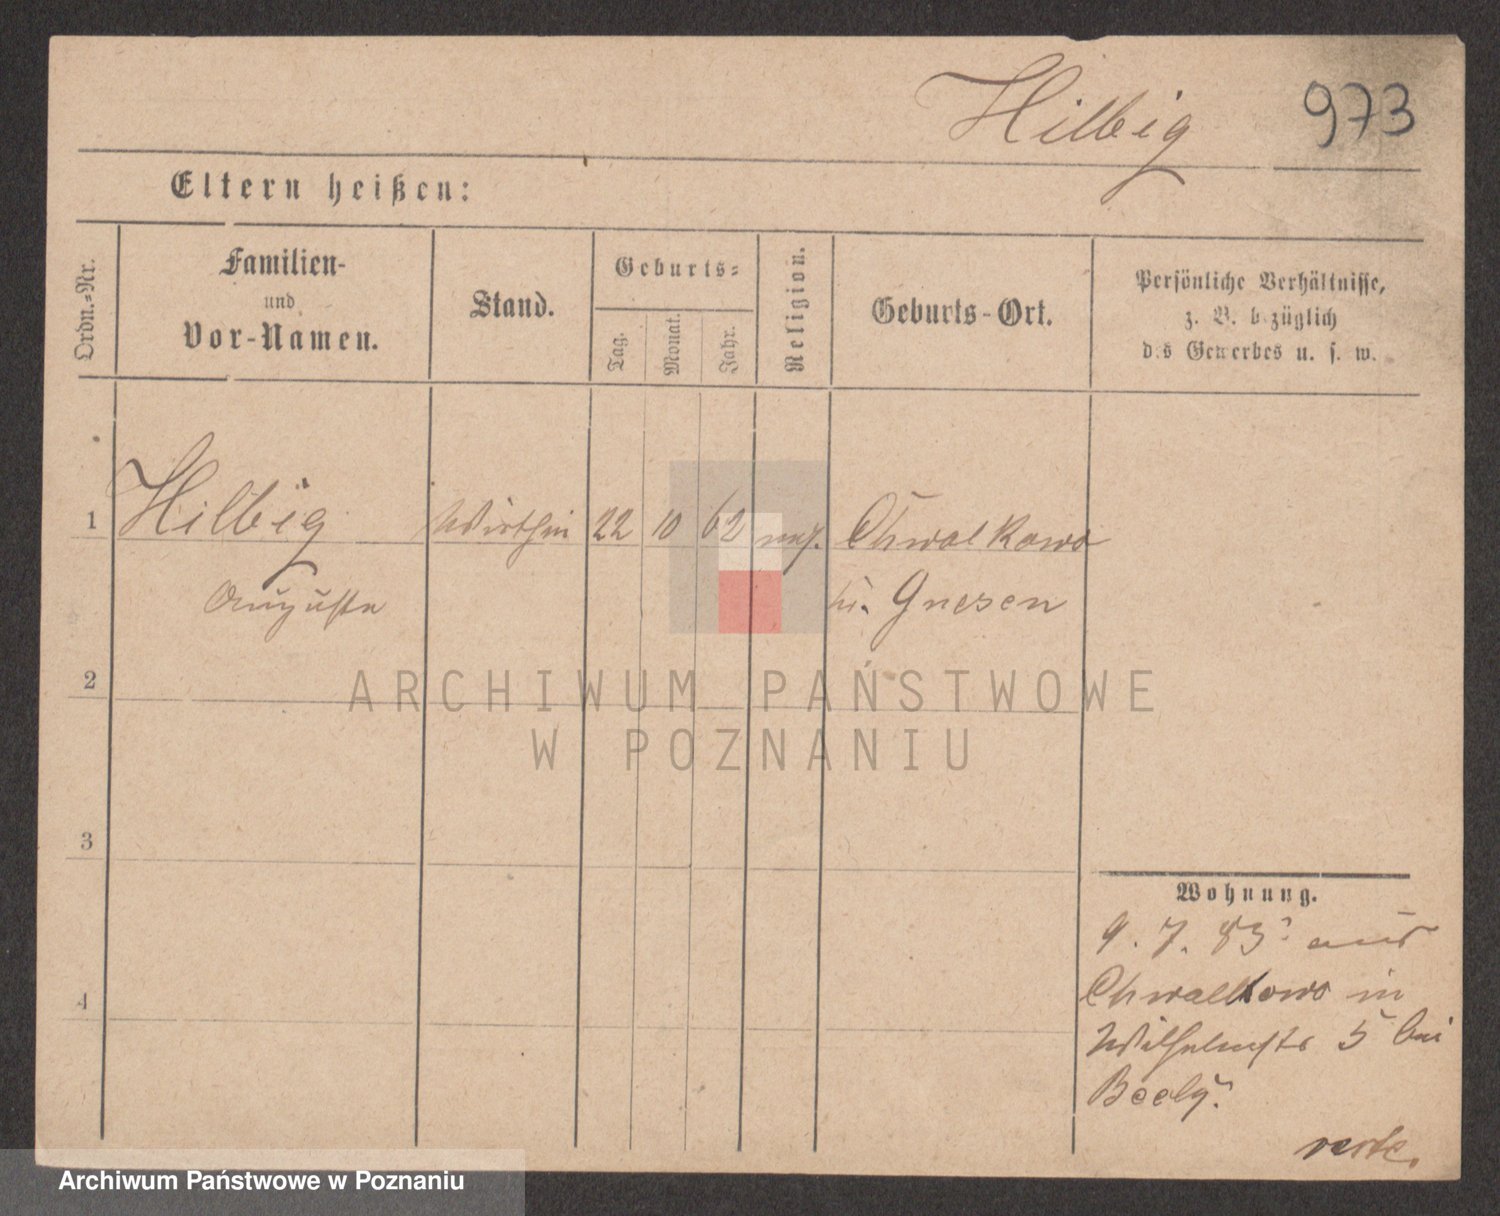 Hilbig 973
Eltern heißen:
Ordn.=Nr.
Familien-
und
Vor-Namen.
Stand.
Geburts=
Tag.
Monat.
Jahr.
Religion.
Geburts-Ort.
Persönliche Verhältnisse,
z. B. bezüglich
des Gewerbes u. s. w.
1 Hilbig Wirthin 22 10 62 Chwalkowo
Auguste Gnesen
2
ARCHIWUM PAŃSTWOWE
W POZNANIU
3
4
Wohnung.
9. 7. 83 aus
Chwalkowo in
Wilhelmstr 5 bei
Beely.
verte.
Archiwum Państwowe w Poznaniu